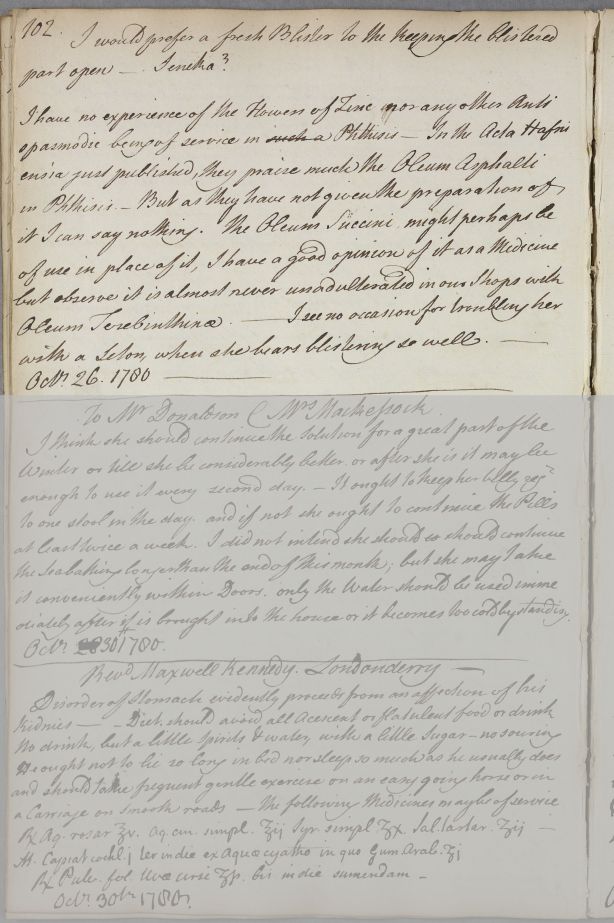 102.
I would prefer a fresh Blister to the keeping the blistered
part open —. Seneka?
I have no experience of the Flowers of Zinc nor any other Anti
spasmodic being of service in such a Phthisis — In the Acta Hafni
ensia just published, they praise much the Oleum Asphalti
in Phthisis. — But as they have not given the preparation of
it I can say nothing. The Oleum Succini, might perhaps be
of use in place of it, I have a good opinion of it as a Medicine
but observe it is almost never unadulterated in our Shops with
Oleum Terebinthinæ. — I see no occasion for troubling her
with a Seton, when she bears blistering so well. —
Octr. 26. 1780
To Mr Donaldson C Mrs Mackessock.
I think she should continue the Solution for a great part of the
Winter or till she be considerably better. or after she is it may be
enough to use it every second day. — It ought to keep her belly regr.
to one stool in the day. and if not she ought to continue the Pills
at least twice a week. I did not intend she should so should continue
the Seabathing longer than the end of this month; but she may take
it conveniently within Doors. only the Water should be used imme
diately after it is brought into the house or it becomes too cold by standing.
Octr. 30th 1780.
Revd. Maxwell Kennedy. Londonderry —
Disorder of Stomach evidently proceeds from an affection of his
Kidnies — — Diet. should avoid all Acescent or flatulent food or drink
No drink, but a little Spirits & water, with a little Sugar — no souring
He ought not to lie so long in bed nor sleep so much as he usually does
and should take frequent gentle exercise on an easy going horse or in
a Carriage on smooth roads — the following Medicines may be of service
℞ Aq. rosar ℥v. Aq. cin. simpl. ℥ij Syr. simpl ℥x. Sal. tartar. ℥ij —
M. Capiat cochl. j ter in die ex Aquæ cyatho in quo Gum. Arab. ℥j
℞ Pulv. fol. Uvæ ursi ℥p. bis in die sumendam —
Octr. 30th 1780.